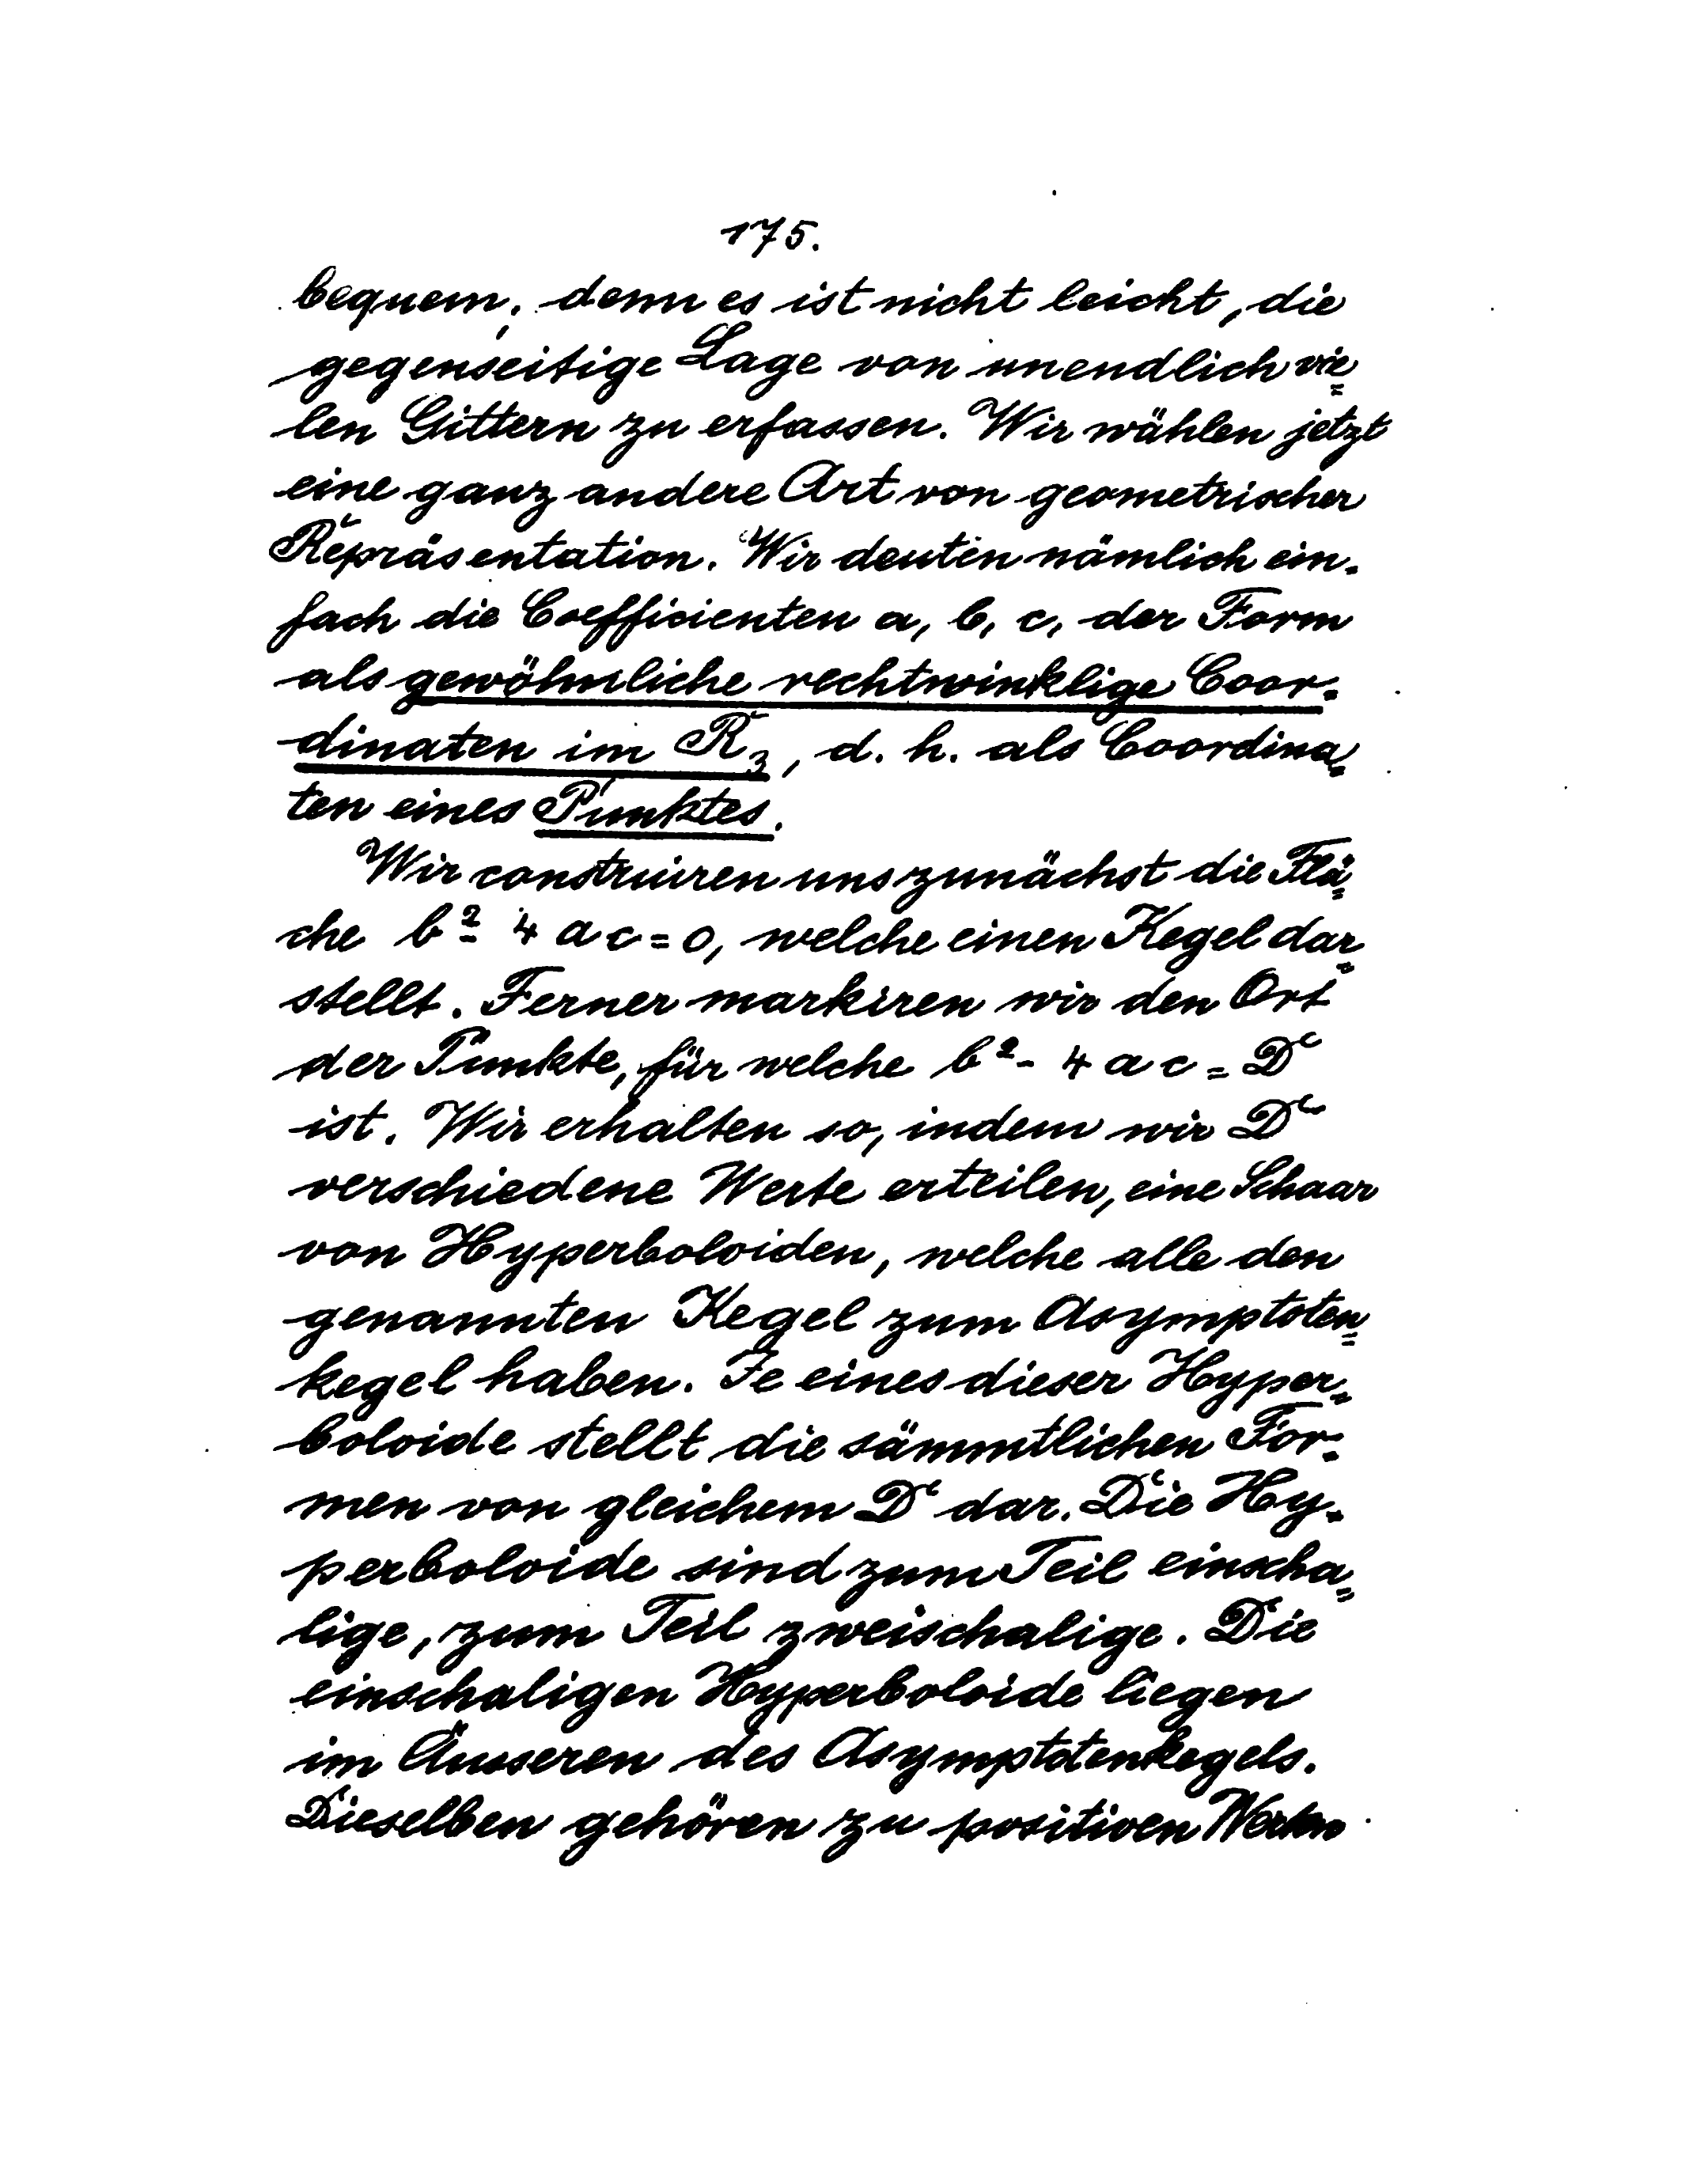 175.
bequem; denn es ist nicht leicht, die
gegenseitige Lage von unendlich vie=
len Gittern zu erfassen. Wir wählen jetzt
eine ganz andere Art von geometrischer
Repräsentation. Wir deuten nämlich ein-
fach die Coefficienten a, b, c, der Form
als gewöhnliche rechtwinklige Coor-
dinaten im R₃, d. h. als Coordina=
ten eines Punktes.
Wir construiren uns zunächst die Flä=
che b² - 4 a c = 0, welche einen Kegel dar=
stellt. Ferner markiren wir den Ort
der Punkte, für welche b² - 4 a c = D
ist. Wir erhalten so, indem wir D
verschiedene Werte erteilen, eine Schaar
von Hyperboloiden, welche alle den
genannten Kegel zum Asymptoten=
kegel haben. Je eines dieser Hyper=
boloide stellt die sämmtlichen For-
men von gleichem D dar. Die Hy-
perboloide sind zum Teil einscha=
lige, zum Teil zweischalige. Die
einschaligen Hyperboloide liegen
im Äusseren des Asymptotenkegels.
Dieselben gehören zu positiven Werten